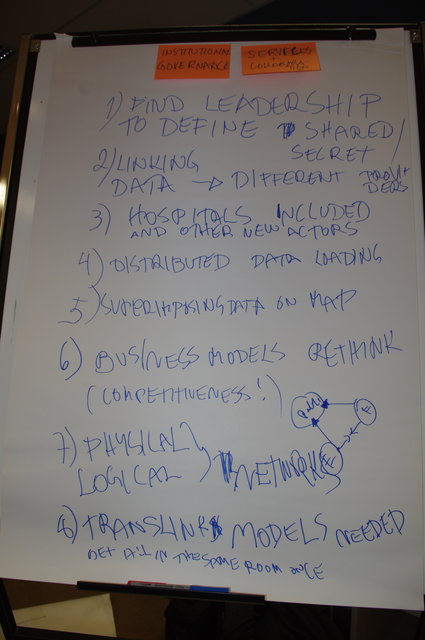 INSTITUTIONAL
GOVERNANCE
SERVICES
+
1) FIND LEADERSHIP
TO DEFINE SHARED/
SECRET
2) LINKING
DATA → DIFFERENT PROVI
DERS
3) HOSPITALS INCLUDED
AND OTHER NEW ACTORS
4) DISTRIBUTED DATA LOADING
5) SUPERIMPOSING DATA ON MAP
6) BUSINESS MODELS RETHINK
(COMPETITIVENESS!)
7) PHYSICAL
LOGICAL NETWORKS
8) TRANSLINK MODELS NEEDED
GET ALL IN THE SAME ROOM ONCE